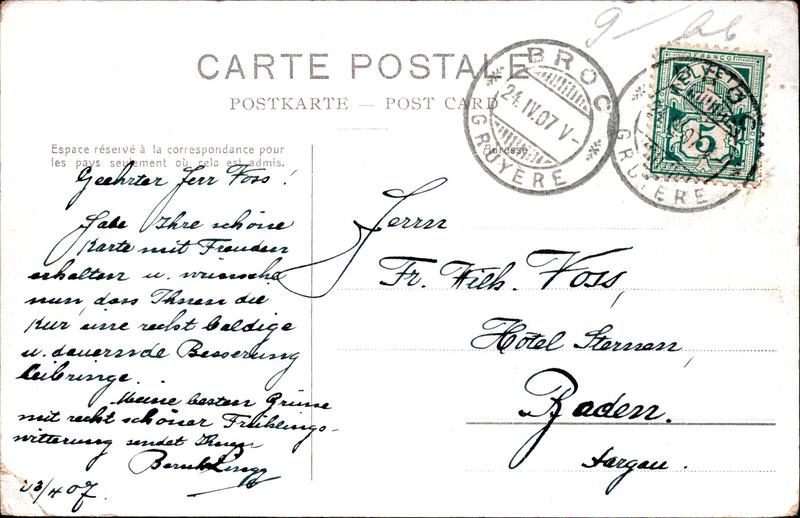 CARTE POSTALE
POSTKARTE — POST CARD
Espace réservé à la correspondance pour
les pays seulement où cela est admis.
Adresse
BROC
24.IV.07 V-
GRUYERE
FRANCO
HELVETIA
5
BROC
GRUYERE
Geehrter Herr Voss!
Habe Ihre schöne
Karte mit Freuden
erhalten u. wünsche
nun, dass Ihnen die
Kur eine recht baldige
u. dauernde Besserung
beibringe.
Meine besten Grüsse
mit recht schöner Frühlings-
witterung sendet Ihnen
23/4 07.
Herrn
Fr. Wilh. Voss,
Hôtel Sternen,
Baden.
Aargau.